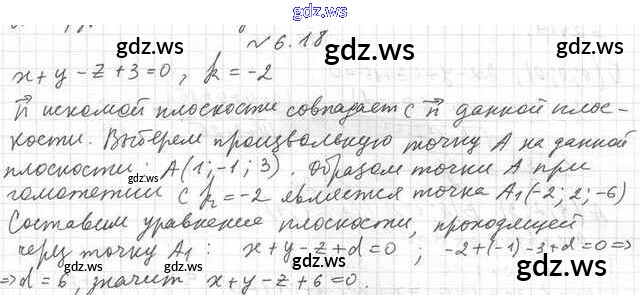 gdz.ws
№6.18
gdz.ws gdz.ws
x+y-z+3=0, k=-2
n⃗ искомой плоскости совпадает с n⃗ данной плос-
кости. Выберем произвольную точку A на данной
плоскости: A(1;-1;3). Образом точки A при
гомотетии с k=-2 является точка A₁(-2;2;-6)
Составим уравнение плоскости, проходящей
через точку A₁: x+y-z+d=0; -2+(-1)-3+d=0 =>
=> d=6, значит x+y-z+6=0.
gdz.ws
gdz.ws
gdz.ws
gdz.ws
gdz.ws
gdz.ws